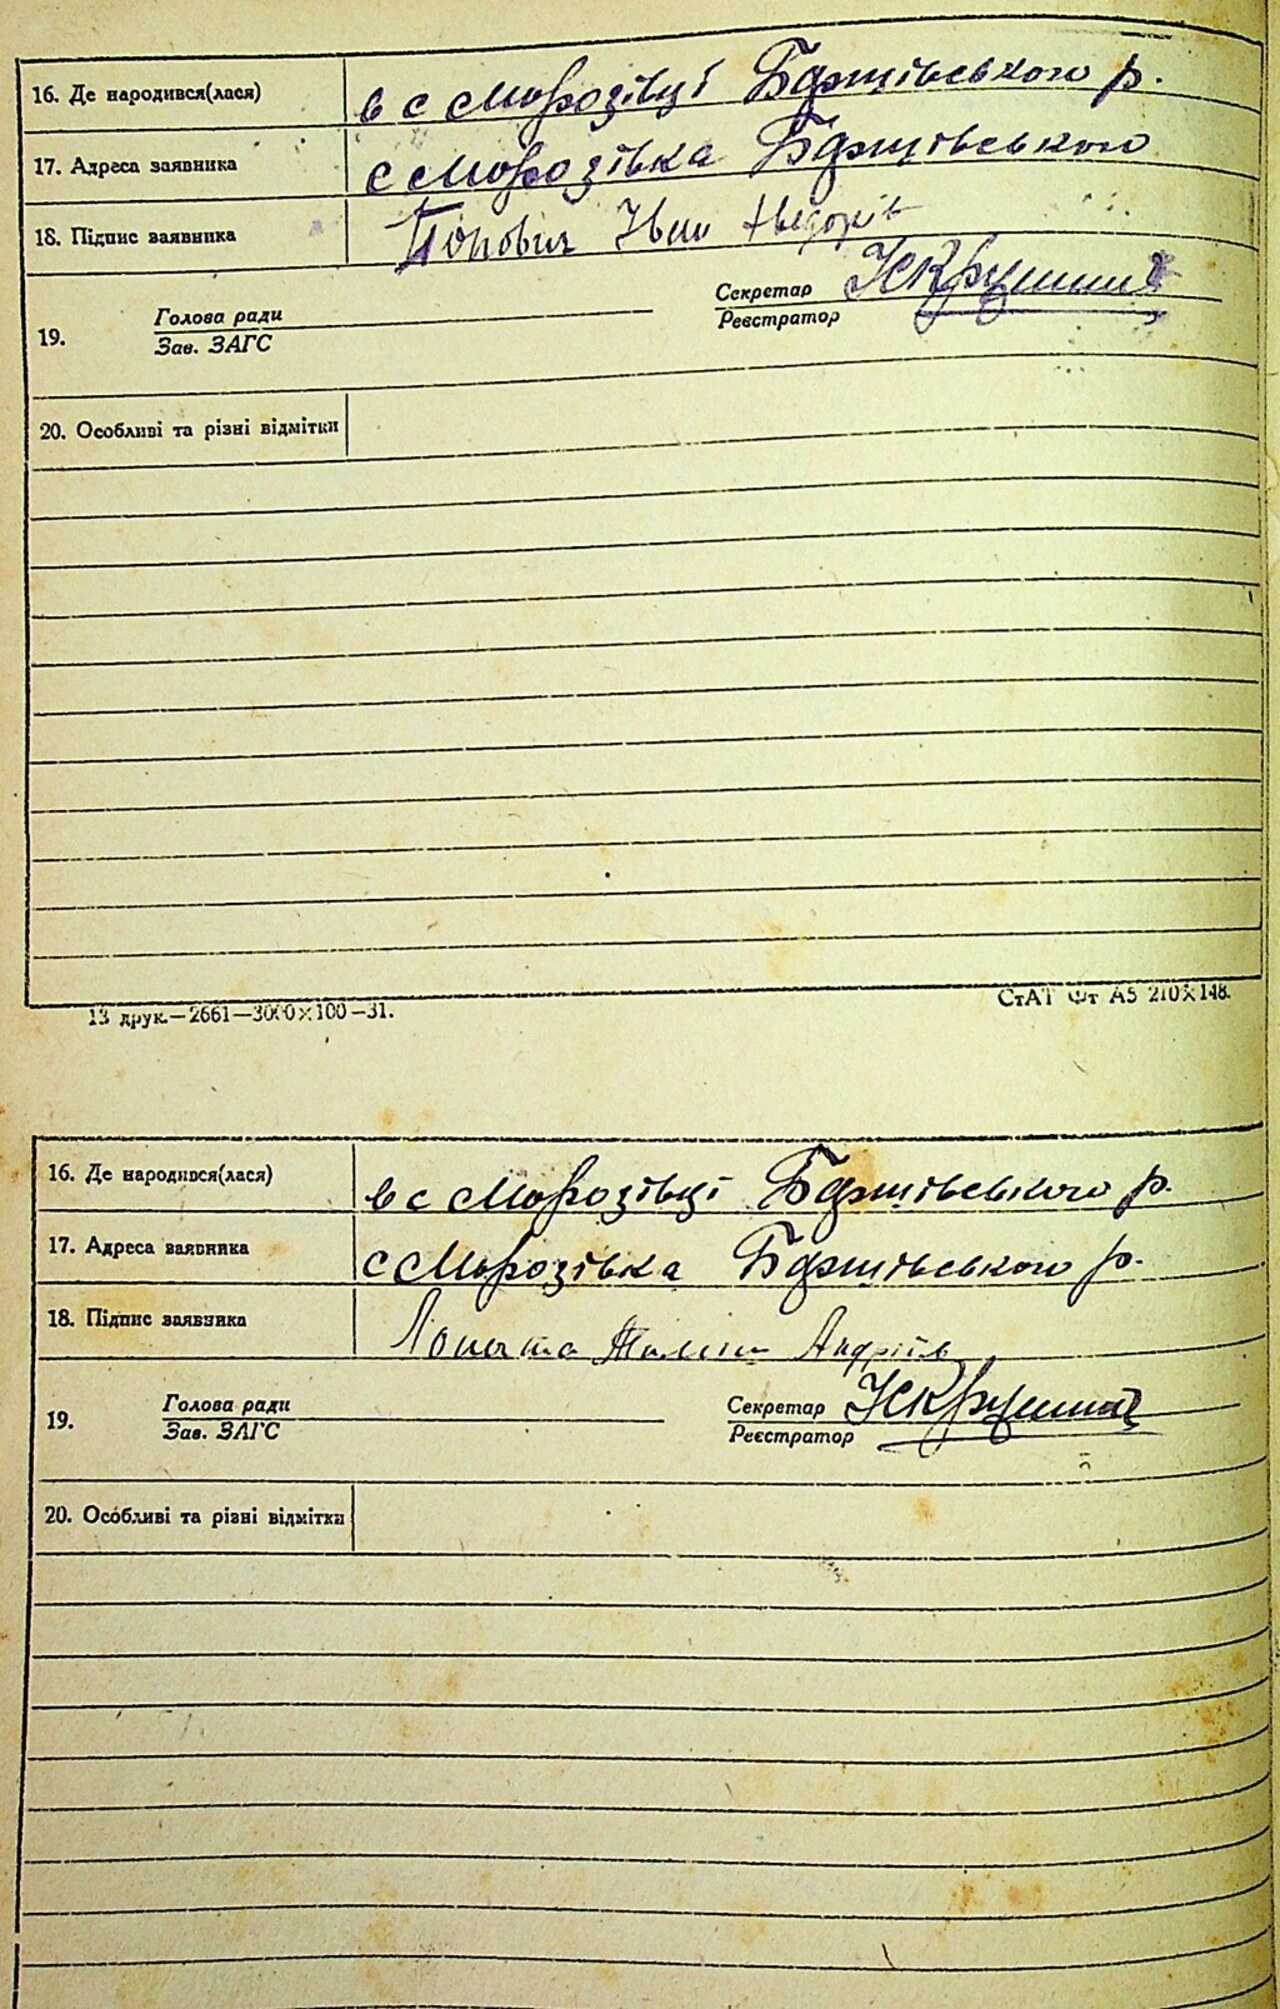 16. Де народився(лася) в с Морозівці Баришівського р.
17. Адреса заявника с Морозівка Баришівського
18. Підпис заявника Попович Іван
Секретар
19. Голова ради Реєстратор
Зав. ЗАГС
20. Особливі та різні відмітки
13 друк.—2661—3000×100—31. СтАТ Фт А5 210×148.
16. Де народився(лася) в с Морозівці Баришівського р.
17. Адреса заявника с Морозівка Баришівського р.
18. Підпис заявника Лопата Андріїв
19. Голова ради Секретар
Зав. ЗАГС Реєстратор
20. Особливі та різні відмітки